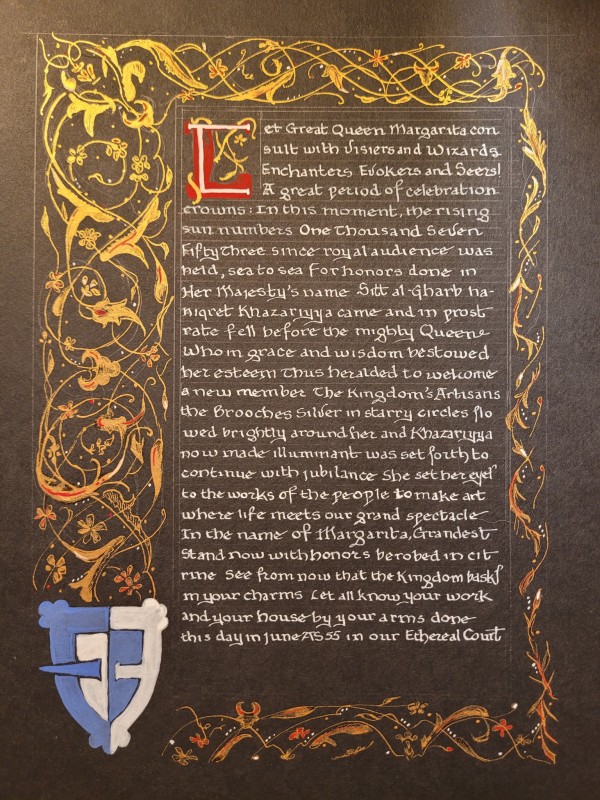 Let Great Queen Margarita con
sult with Visiers and Wizards
Enchanters Evokers and Seers!
A great period of celebration
crowns: In this moment, the rising
sun numbers One Thousand Seven
Fifty Three since royal audience was
held, sea to sea for honors done in
Her Majesty's name Sitt al-Gharb ha-
niqret Khazariyya came and in prost
rate fell before the mighty Queen
Who in grace and wisdom bestowed
her esteem Thus heralded to welcome
a new member The Kingdom's Artisans
the Brooches Silver in starry circles flo
wed brightly around her and Khazariyya
now made illuminant was set forth to
continue with jubilance She set her eyes
to the works of the people to make art
where life meets our grand spectacle
In the name of Margarita, Grandest
Stand now with honors berobed in cit
rine See from now that the Kingdom basks
in your charms Let all know your work
and your house by your arms done
this day in June AS 55 in our Ethereal Court